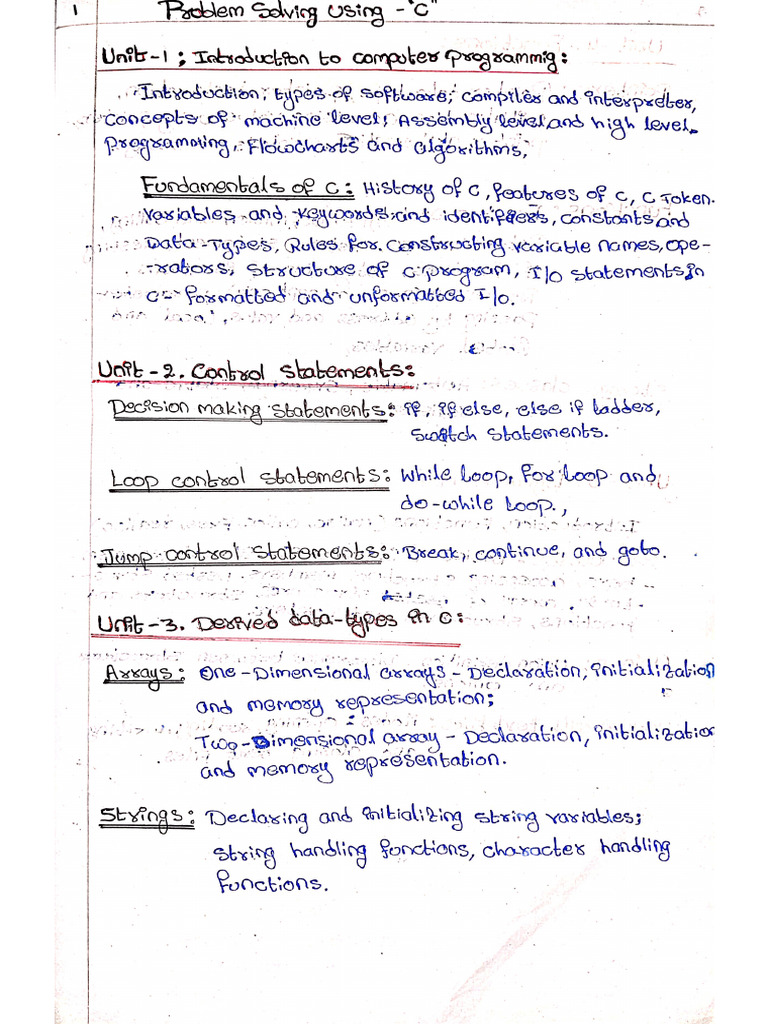 1 Problem Solving Using - "C"
Unit-1; Introduction to computer programmig:
Introduction, types of software, compiler and interpreter,
concepts of machine level, Assembly level and high level
programming, Flowcharts and algorithms,
Fundamentals of C: History of C, features of C, C Token.
variables and keywords and identifiers, constants and
Data-Types, Rules for constructing variable names, ope-
-rators, structure of C program, I/O statements in
C- formatted and unformatted I/o.
Unit-2. Control statements:
Decision making statements: if, if else, else if ladder,
switch statements.
Loop control statements: while loop, for loop and
do-while loop.,
Jump control statements: Break, continue, and goto.
Unit-3. Derived data-types in C:
Arrays: One-Dimensional arrays - Declaration, initialization
and memory representation;
Two-Dimensional array - Declaration, initialization
and memory representation.
Strings: Declaring and initializing string variables;
string handling functions, character handling
functions.